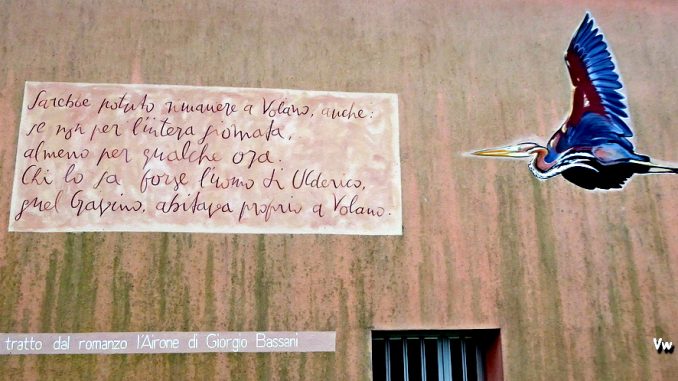 Sarebbe potuto rimanere a Volano, anche:
se non per l'intera giornata,
almeno per qualche ora.
Chi lo sa forse l'uomo di Ulderico,
quel Gavino, abitava proprio a Volano.
tratto dal romanzo l'Airone di Giorgio Bassani
Vw